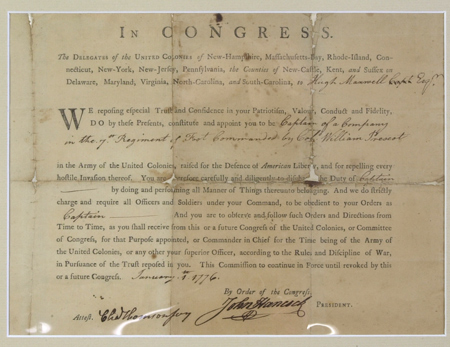 IN CONGRESS.
The DELEGATES of the UNITED COLONIES of New-Hampshire, Massachusetts-Bay, Rhode-Island, Con-
necticut, New-York, New-Jersey, Pennsylvania, the Counties of New-Castle, Kent, and Sussex on
Delaware, Maryland, Virginia, North-Carolina, and South-Carolina, to Hugh Maxwell Capt Esqr
WE reposing especial Trust and Confidence in your Patriotism, Valour, Conduct and Fidelity,
DO by these Presents, constitute and appoint you to be Captain of a Company
in the 7th Regiment of Foot Commanded by Colo William Prescot
in the Army of the United Colonies, raised for the Defence of American Liberty, and for repelling every
hostile Invasion thereof. You are therefore carefully and diligently to discharge the Duty of Captain
by doing and performing all Manner of Things thereunto belonging. And we do strictly
charge and require all Officers and Soldiers under your Command, to be obedient to your Orders as
Captain And you are to observe and follow such Orders and Directions from
Time to Time, as you shall receive from this or a future Congress of the United Colonies, or Committee
of Congress, for that Purpose appointed, or Commander in Chief for the Time being of the Army of
the United Colonies, or any other your superior Officer, according to the Rules and Discipline of War,
in Pursuance of the Trust reposed in you. This Commission to continue in Force until revoked by this
or a future Congress. January 1st 1776
By Order of the Congress,
John Hancock PRESIDENT.
Attest. Chas Thomson Secy